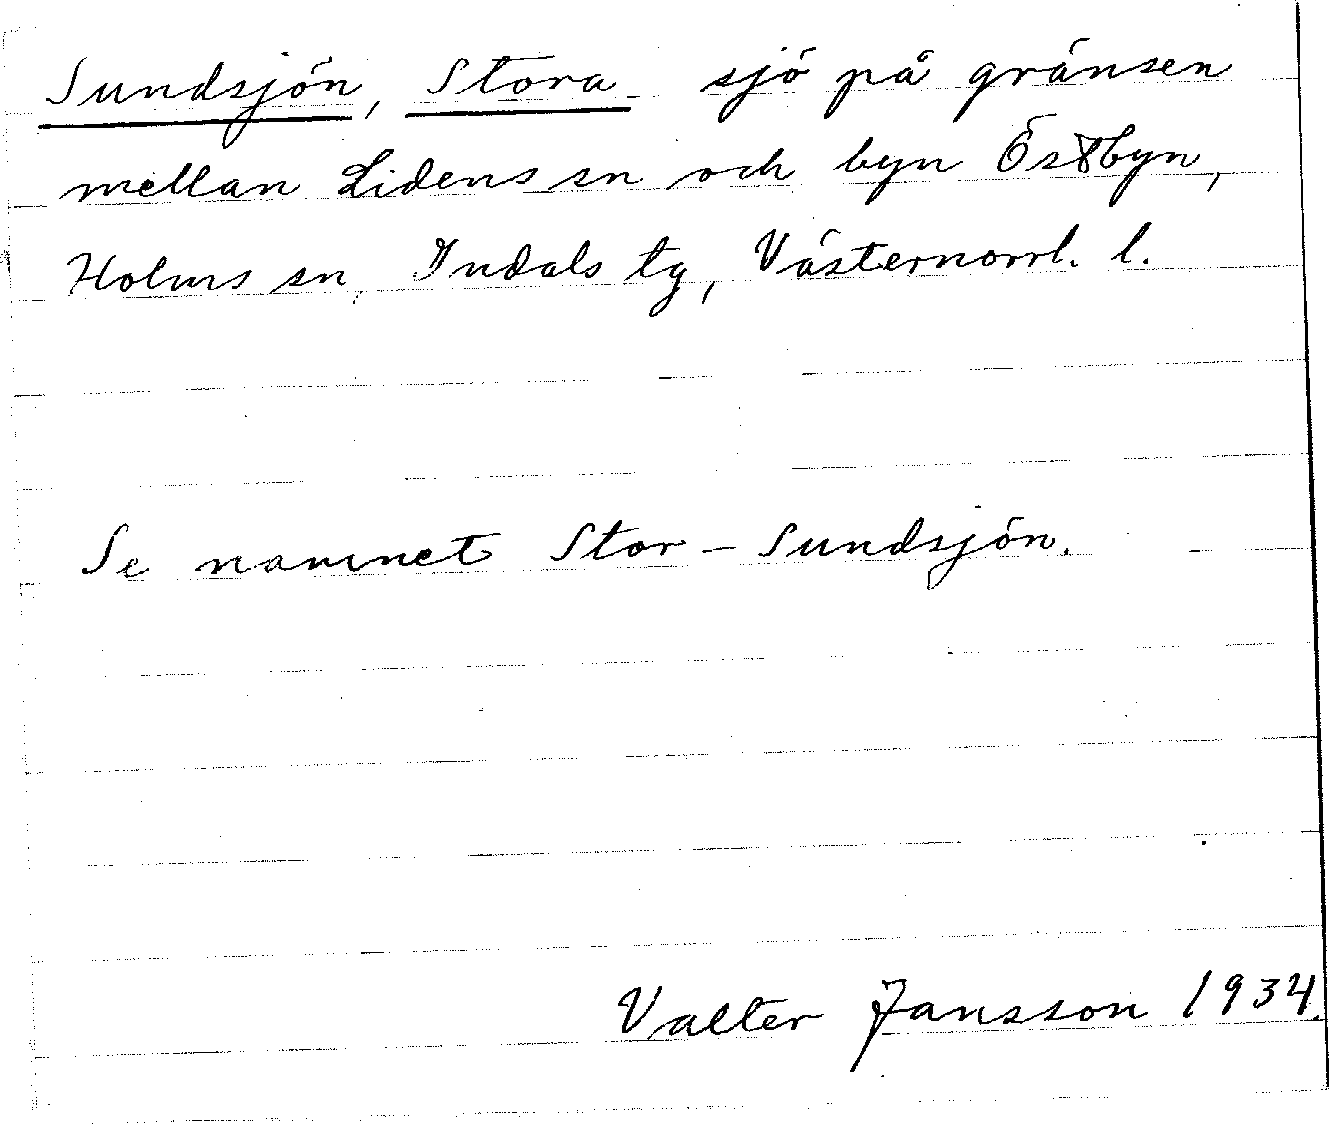 Sundsjön, Stora sjö på gränsen
mellan Lidens sn och byn Östbyn,
Holms sn, Indals tg, Västernorrl. l.
Se namnet Stor-Sundsjön.
Valter Jansson 1934.